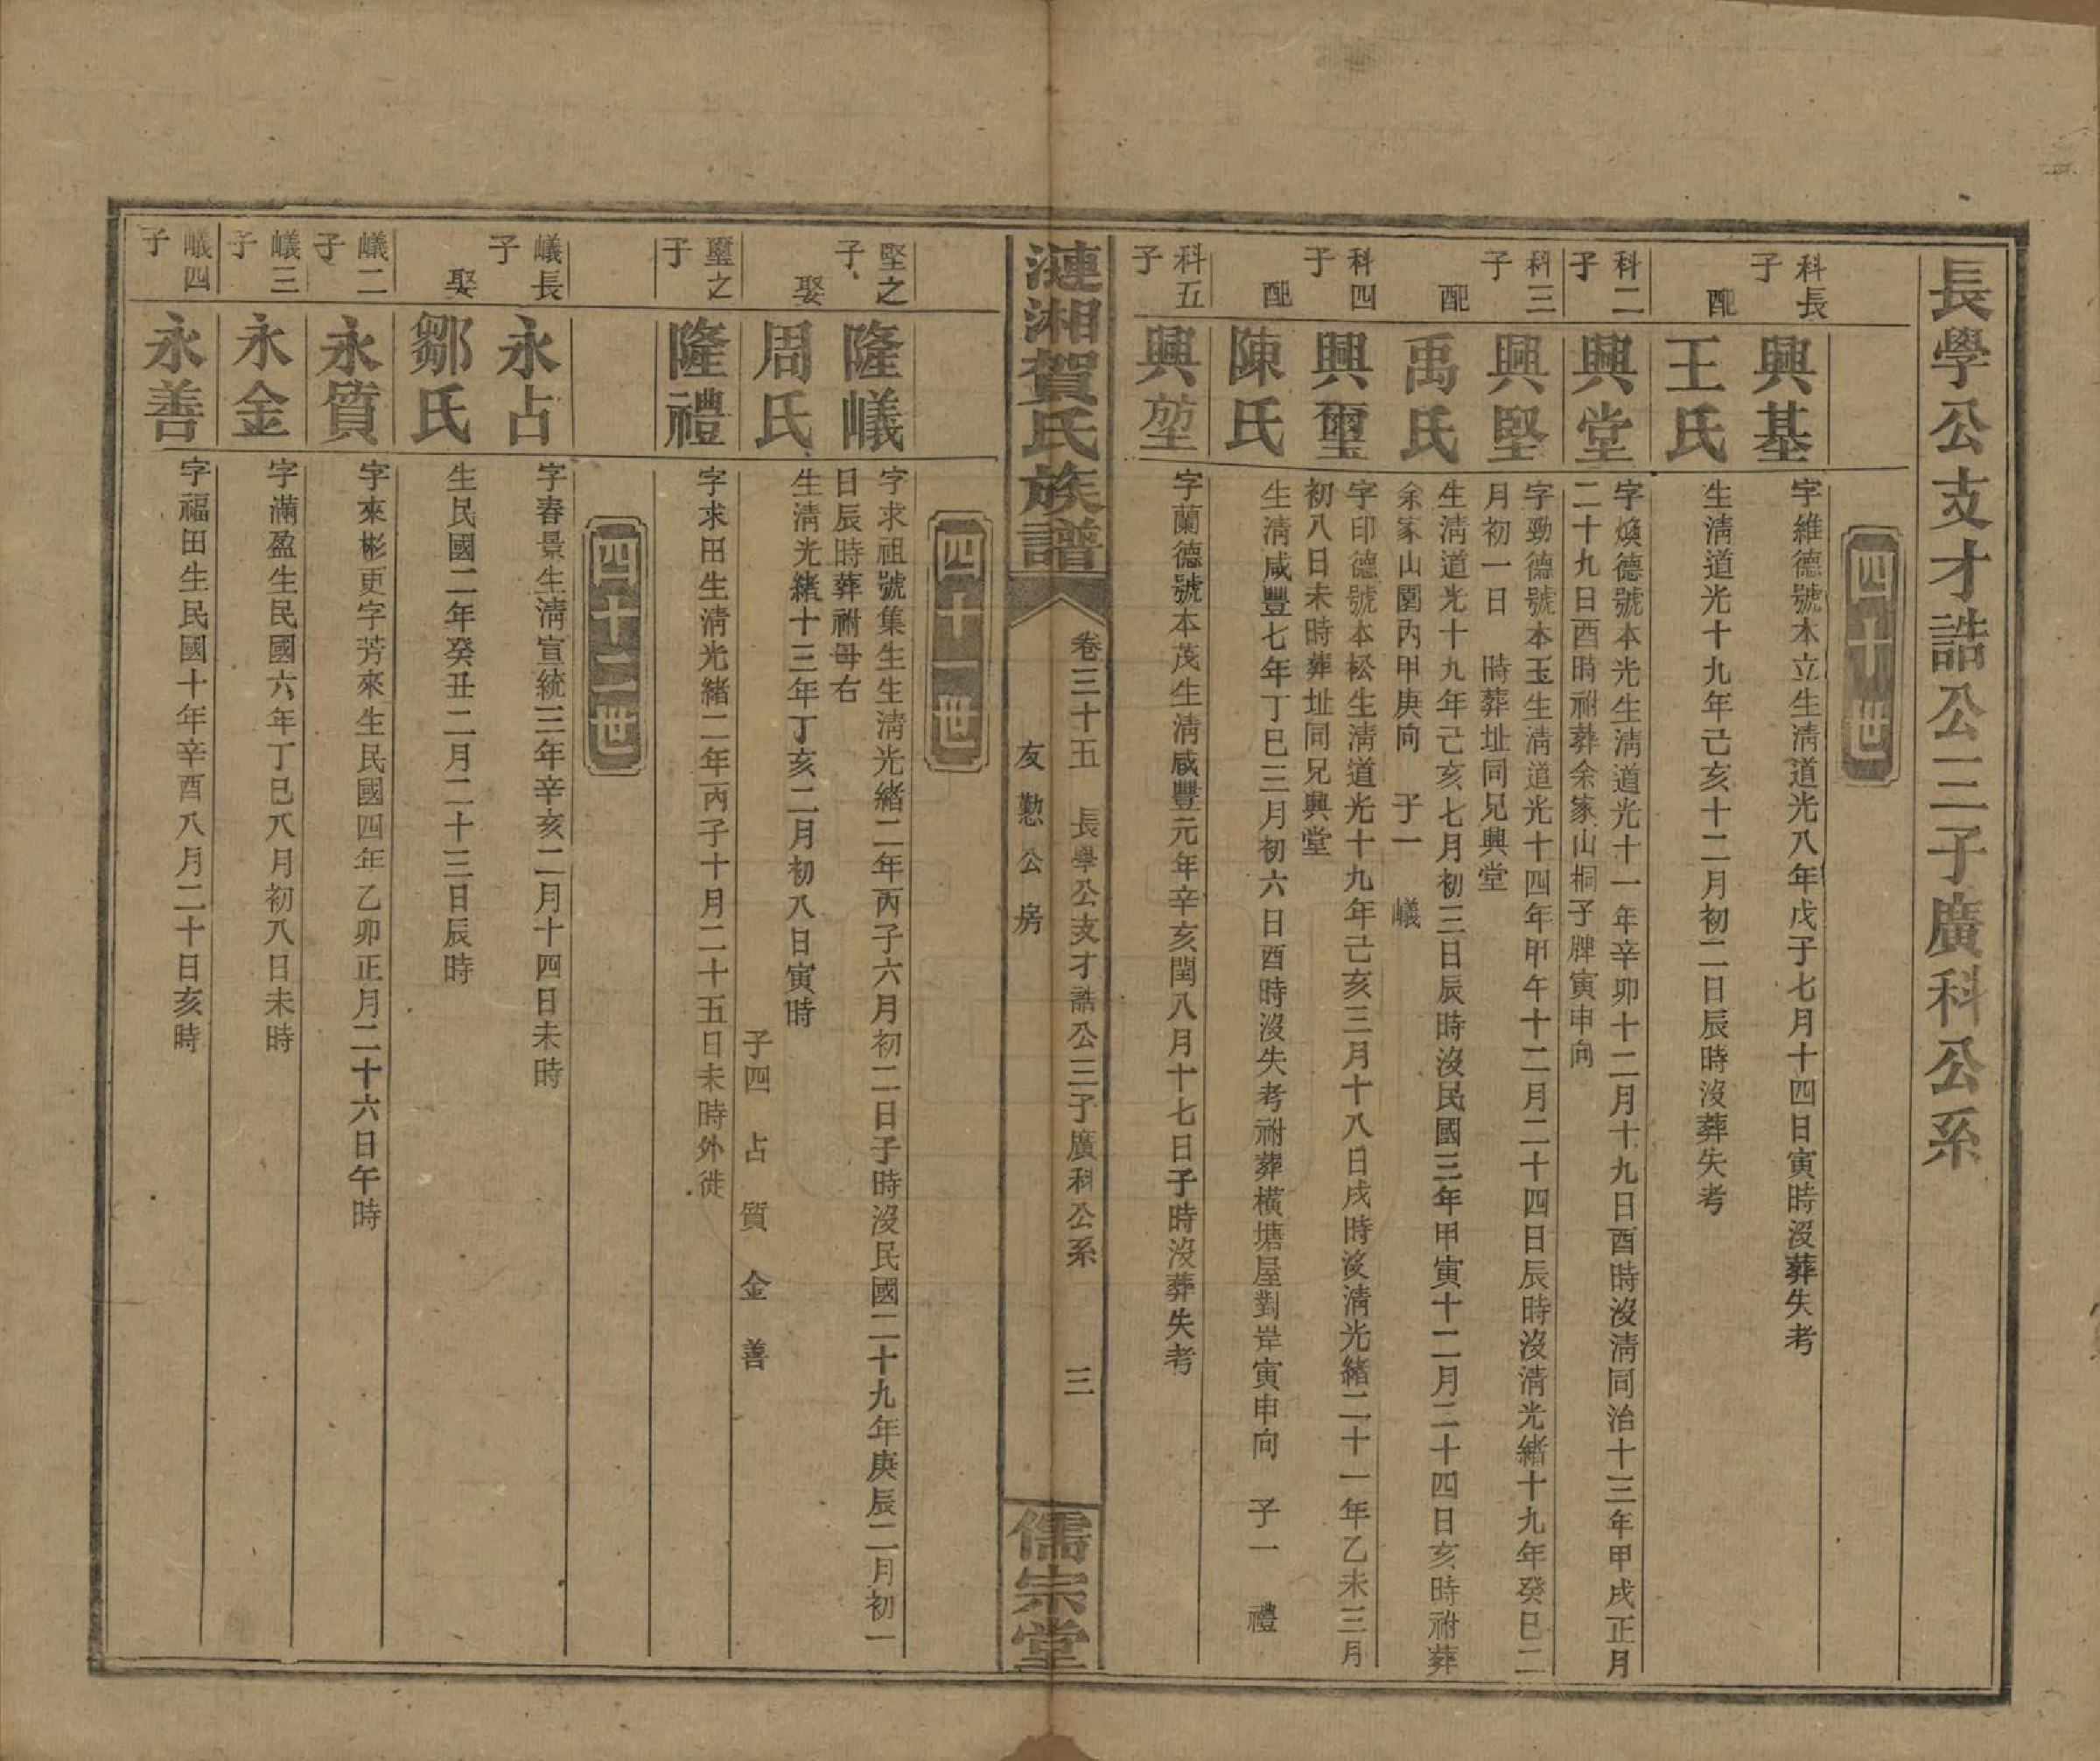 長學公支才誥公三子廣科公系
四十世
科長子
興基
字維德號木立生淸道光八年戊子七月十四日寅時沒葬失考
配
王氏
生淸道光十九年己亥十二月初二日辰時沒葬失考
科二子
興堂
字煥德號本光生淸道光十一年辛卯十二月十九日酉時沒淸同治十三年甲戌正月
二十九日酉時祔葬余家山桐子脾寅申向
科三子
興堅
字勁德號本玉生淸道光十四年甲午十二月二十四日辰時沒淸光緒十九年癸巳二
月初一日　時葬址同兄興堂
配
禹氏
生淸道光十九年己亥七月初三日辰時沒民國三年甲寅十二月二十四日亥時祔葬
余家山園內甲庚向　子一　嶬
科四子
興璽
字印德號本松生淸道光十九年己亥三月十八日戌時沒淸光緒二十一年乙未三月
初八日未時葬址同兄興堂
配
陳氏
生淸咸豐七年丁巳三月初六日酉時沒失考祔葬橫塘屋對岸寅申向　子一　禮
科五子
興堃
字蘭德號本茂生淸咸豐元年辛亥閏八月十七日子時沒葬失考
漣湘賀氏族譜
卷三十五　長學公支才誥公三子廣科公系　三
友懃公房
儒宗堂
四十一世
堅之子
隆嶬
字求祖號集生生淸光緒二年丙子六月初二日子時沒民國二十九年庚辰二月初一
日辰時葬祔母右
娶
周氏
生淸光緒十三年丁亥二月初八日寅時
子四　占　質　金　善
璽之子
隆禮
字求田生淸光緒二年丙子十月二十五日未時外徙
四十二世
嶬長子
永占
字春景生淸宣統三年辛亥二月十四日未時
娶
鄒氏
生民國二年癸丑二月二十三日辰時
嶬二子
永質
字來彬更字芳來生民國四年乙卯正月二十六日午時
嶬三子
永金
字滿盈生民國六年丁巳八月初八日未時
嶬四子
永善
字福田生民國十年辛酉八月二十日亥時